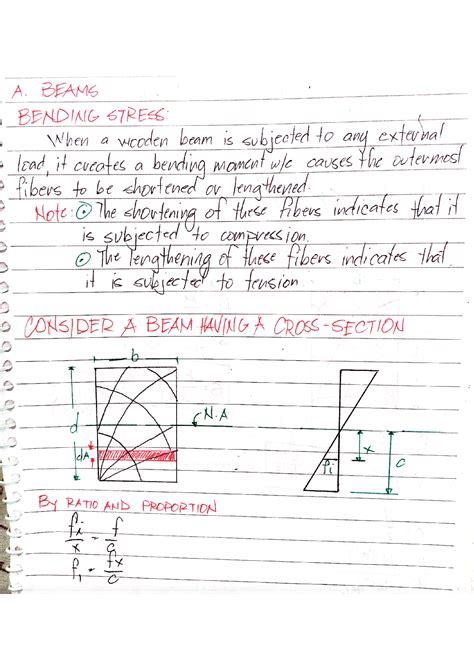 A. BEAMS
BENDING STRESS:
When a wooden beam is subjected to any external
load, it creates a bending moment w/c causes the outermost
fibers to be shortened or lengthened.
Note: ⊙ The shortening of these fibers indicates that it
is subjected to compression.
⊙ The lengthening of these fibers indicates that
it is subjected to tension.
CONSIDER A BEAM HAVING A CROSS-SECTION
b
d
N.A
dA
fi
x
c
By RATIO AND PROPORTION
fi/x = f/c
f1 = fx/c